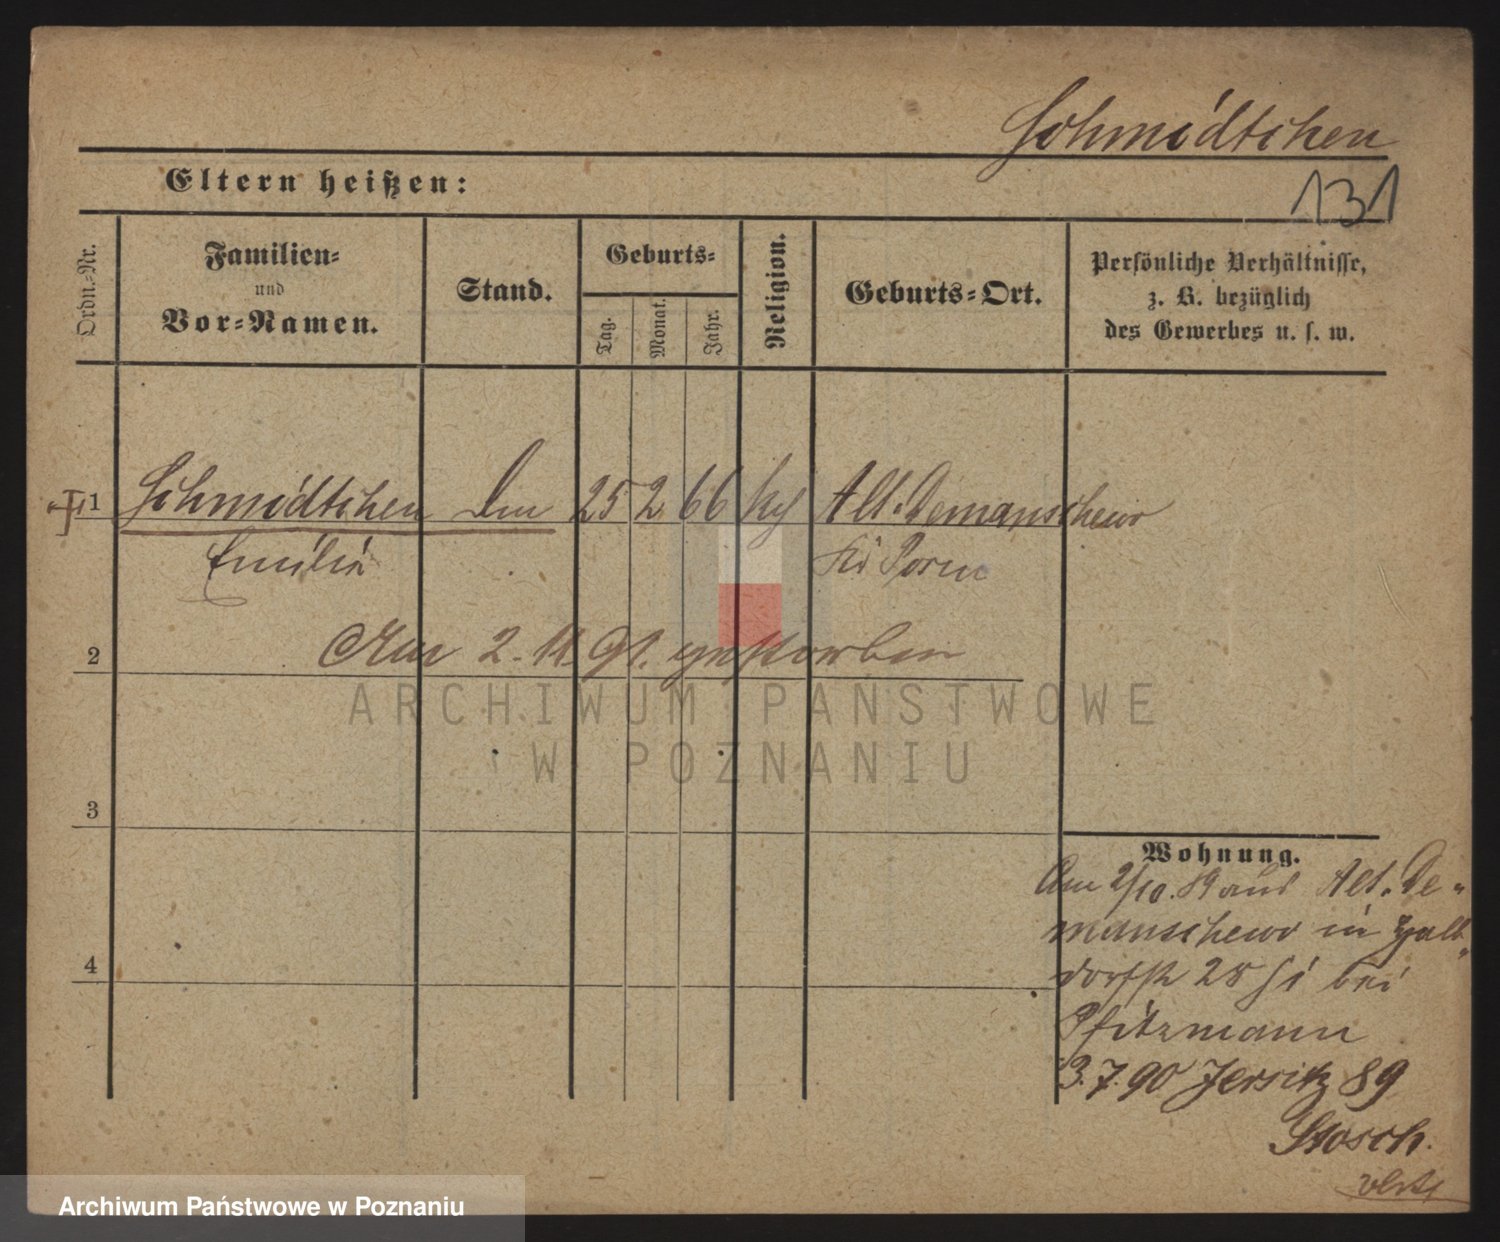 Schmidtchen
131
Eltern heißen:
Ordn.-Nr.
Familien-
und
Vor-Namen.
Stand.
Geburts-
Tag.
Monat.
Jahr.
Religion.
Geburts-Ort.
Persönliche Verhältnisse,
z. B. bezüglich
des Gewerbes u. s. w.
1 Schmidtchen 25 2 66 Alt-Demanscheur
Emilie
2 Am 2. 11 91. gestorben
ARCHIWUM PAŃSTWOWE
W POZNANIU
3
4
Wohnung.
Am 2/10. 89 aus Alt-De-
manscheur in Halb-
dorfstr 28 bei
Pfitzmann
3.7.90 Jersitz 89
Stosch.
Archiwum Państwowe w Poznaniu